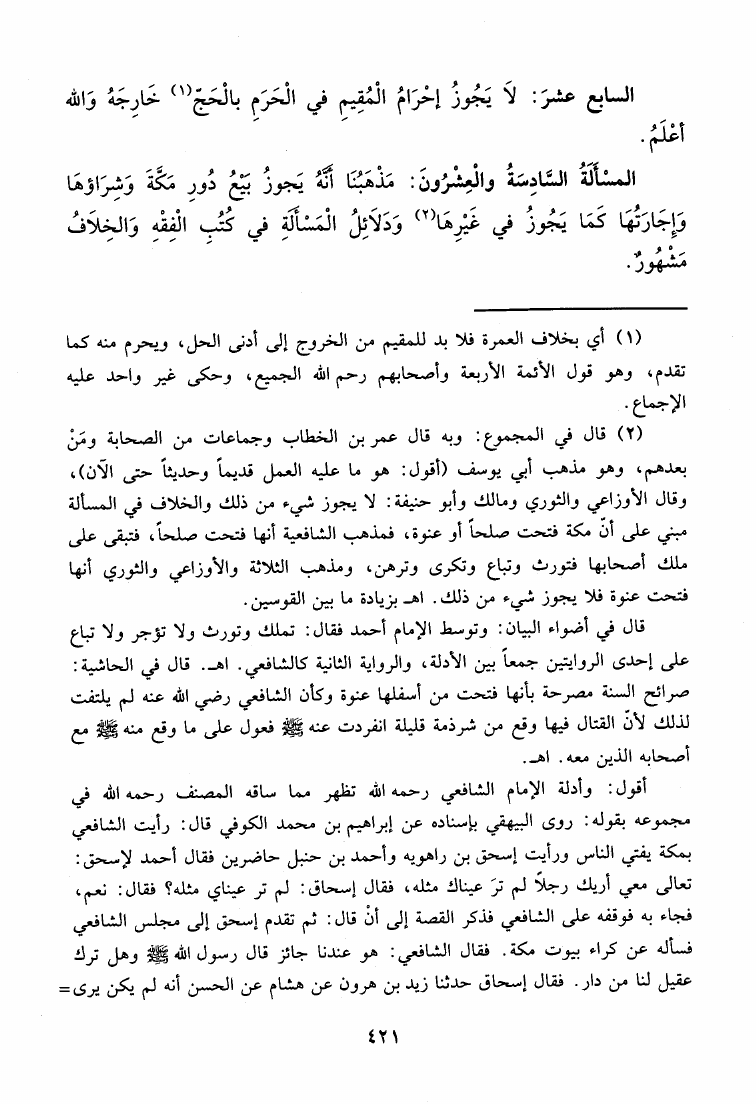 السابع عشرَ: لاَ يَجُوزُ إحْرَامُ الْمُقِيمِ في الْحَرَمِ بِالْحَجّ(١) خَارِجَهُ وَالله
أعْلَمُ.
المسْألَةُ السَّادِسَةُ والْعِشْرُونَ: مَذْهَبُنَا أنَّهُ يَجوزُ بَيْعُ دُورِ مَكَّةَ وَشِرَاؤهَا
وَإجَارَتُهَا كَمَا يَجُوزُ في غَيْرِهَا(٢) وَدَلاَئِلُ الْمَسْألَةِ في كُتُبِ الْفِقْهِ وَالخِلاَفُ
مَشْهُورٌ.
(١) أي بخلاف العمرة فلا بد للمقيم من الخروج إلى أدنى الحل، ويحرم منه كما
تقدم، وهو قول الأئمة الأربعة وأصحابهم رحم الله الجميع، وحكى غير واحد عليه
الإجماع.
(٢) قال في المجموع: وبه قال عمر بن الخطاب وجماعات من الصحابة ومَنْ
بعدهم، وهو مذهب أبي يوسف (أقول: هو ما عليه العمل قديماً وحديثاً حتى الآن)،
وقال الأوزاعي والثوري ومالك وأبو حنيفة: لا يجوز شيء من ذلك والخلاف في المسألة
مبني على أنّ مكة فتحت صلحاً أو عنوة، فمذهب الشافعية أنها فتحت صلحاً، فتبقى على
ملك أصحابها فتورث وتباع وتكرى وترهن، ومذهب الثلاثة والأوزاعي والثوري أنها
فتحت عنوة فلا يجوز شيء من ذلك. اهـ بزيادة ما بين القوسين.
قال في أضواء البيان: وتوسط الإمام أحمد فقال: تملك وتورث ولا تؤجر ولا تباع
على إحدى الروايتين جمعاً بين الأدلة، والرواية الثانية كالشافعي. اهـ. قال في الحاشية:
صرائح السنة مصرحة بأنها فتحت من أسفلها عنوة وكأن الشافعي رضي الله عنه لم يلتفت
لذلك لأنّ القتال فيها وقع من شرذمة قليلة انفردت عنه ﷺ فعول على ما وقع منه ﷺ مع
أصحابه الذين معه. اهـ.
أقول: وأدلة الإمام الشافعي رحمه الله تظهر مما ساقه المصنف رحمه الله في
مجموعه بقوله: روى البيهقي بإسناده عن إبراهيم بن محمد الكوفي قال: رأيت الشافعي
بمكة يفتي الناس ورأيت إسحق بن راهويه وأحمد بن حنبل حاضرين فقال أحمد لإسحق:
تعالى معي أريك رجلاً لم ترَ عيناك مثله، فقال إسحاق: لم تر عيناي مثله؟ فقال: نعم،
فجاء به فوقفه على الشافعي فذكر القصة إلى أنْ قال: ثم تقدم إسحق إلى مجلس الشافعي
فسأله عن كراء بيوت مكة. فقال الشافعي: هو عندنا جائز قال رسول الله ﷺ وهل ترك
عقيل لنا من دار. فقال إسحاق حدثنا زيد بن هرون عن هشام عن الحسن أنه لم يكن يرى=
٤٢١